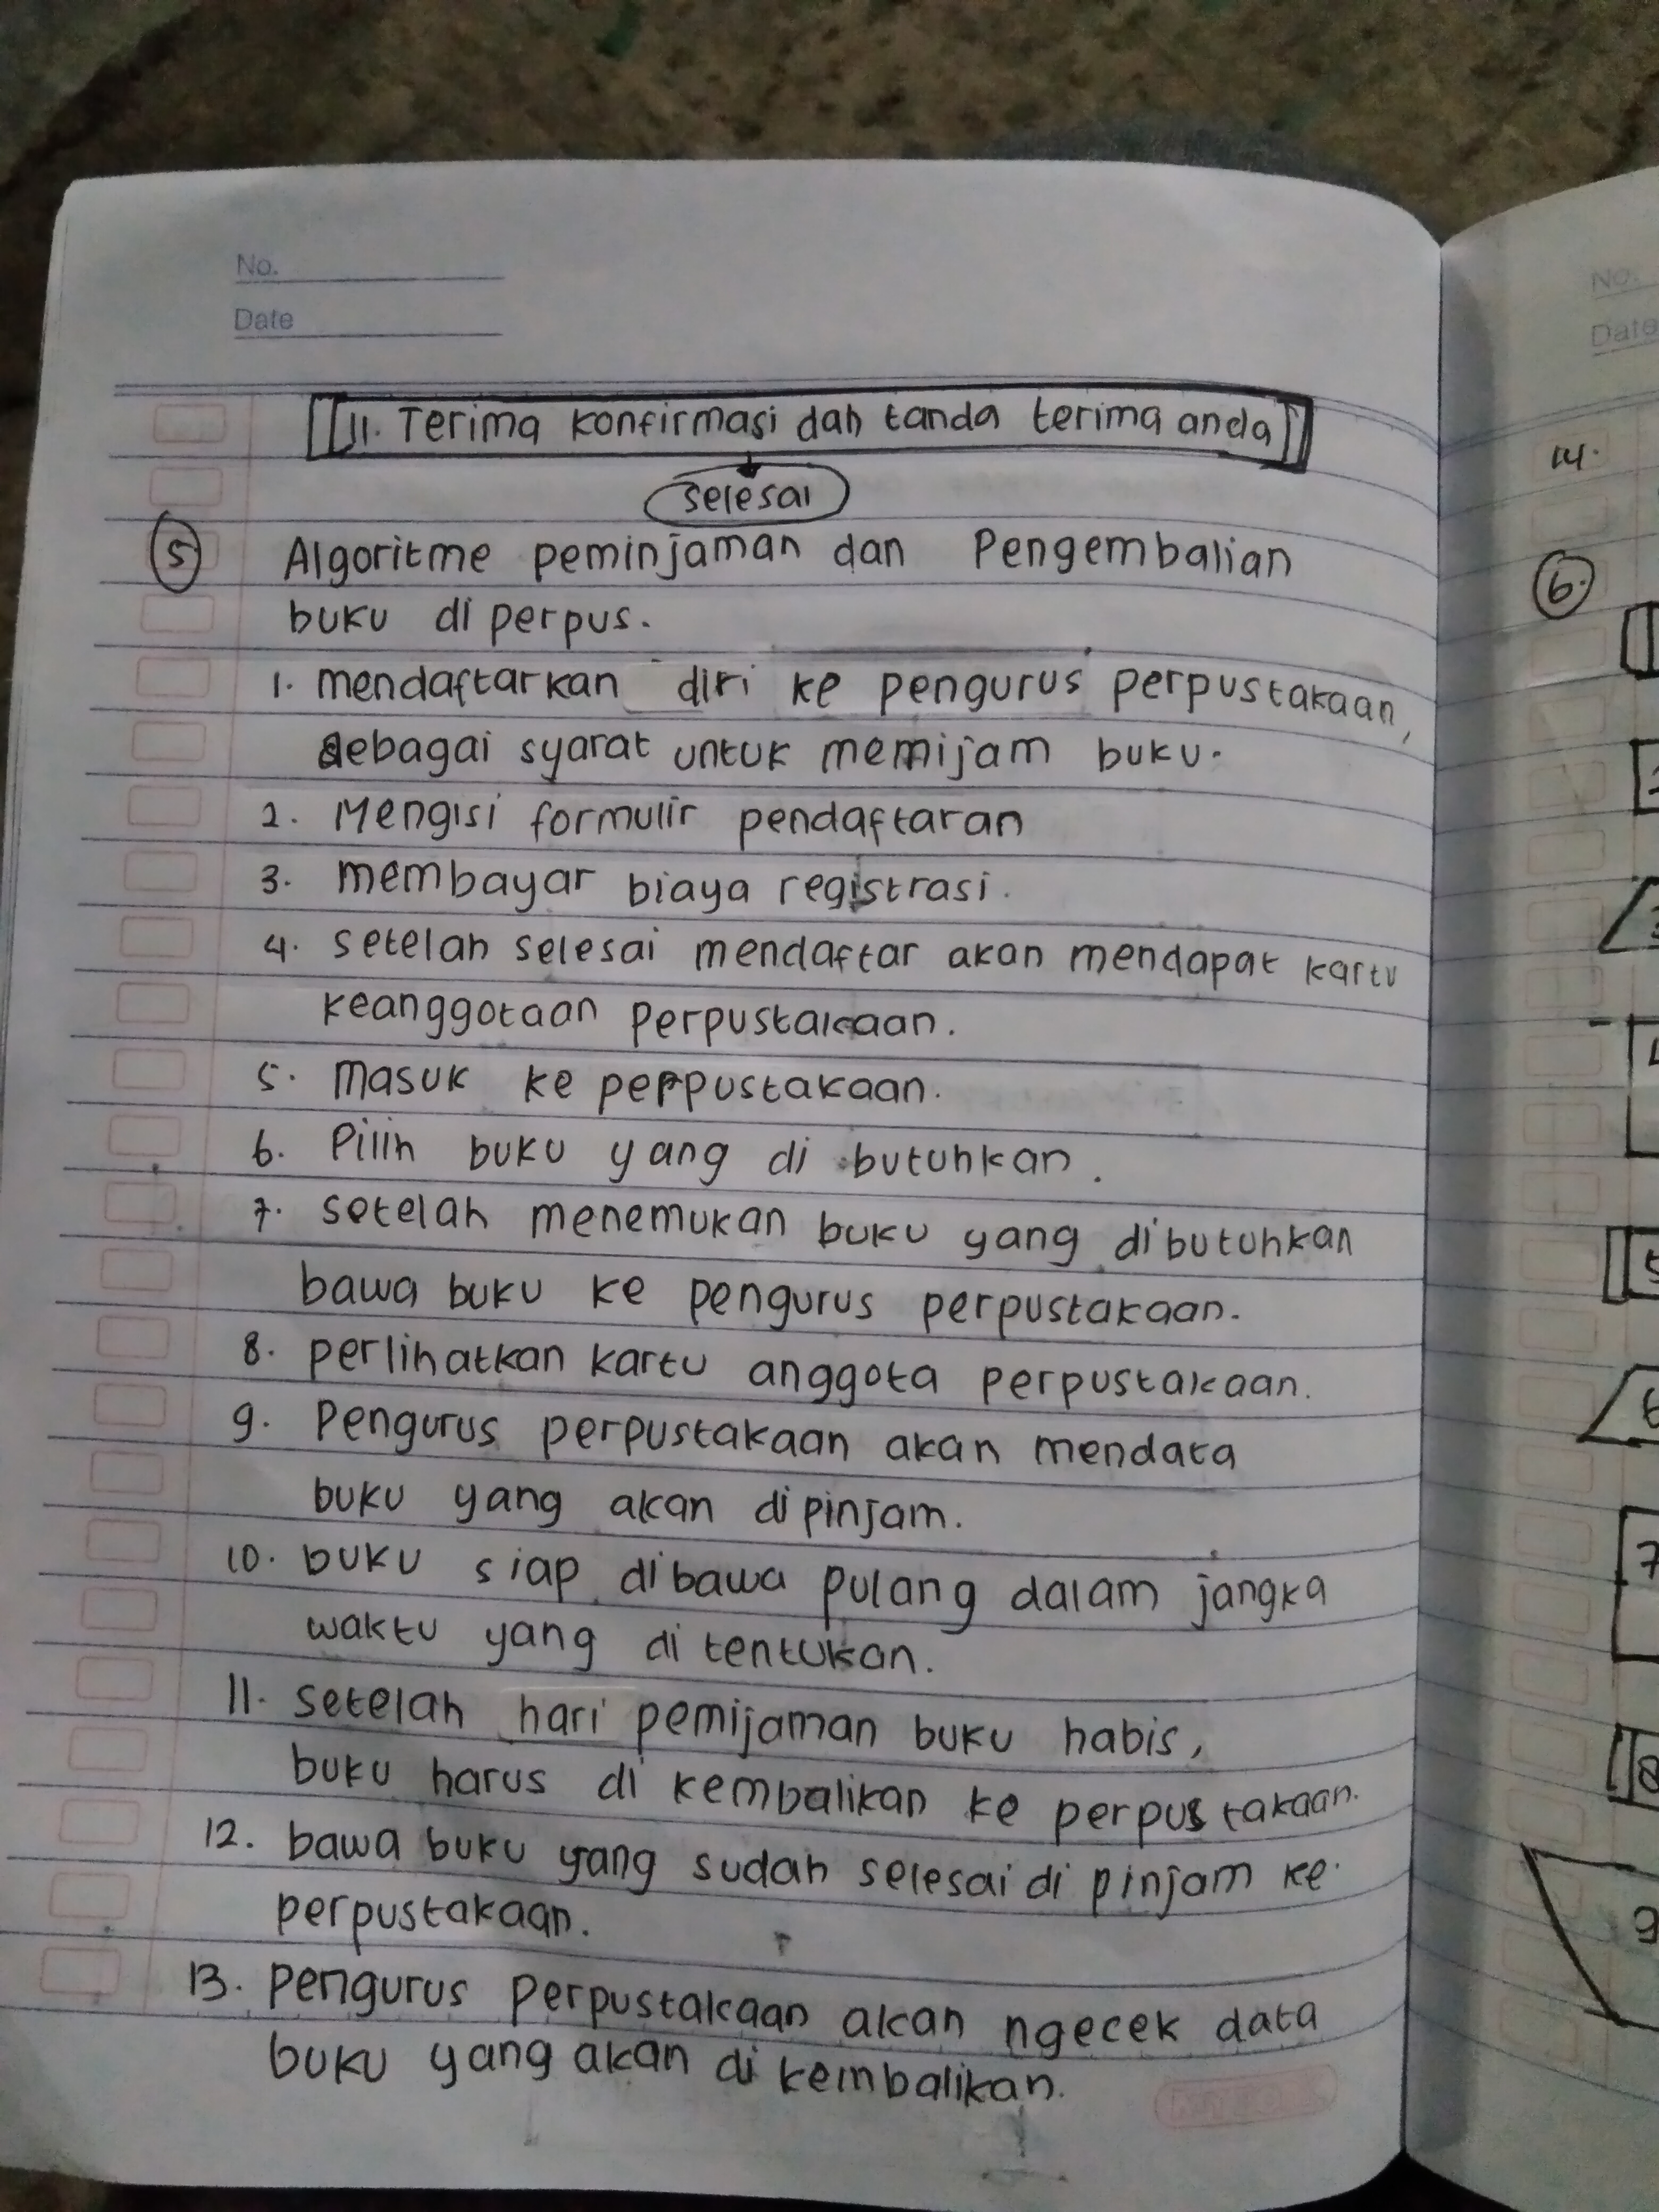 No.
Date
11. Terima konfirmasi dan tanda terima anda
selesai
5 Algoritme peminjaman dan Pengembalian
buku di perpus.
1. mendaftarkan diri ke pengurus perpustakaan,
sebagai syarat untuk memijam buku.
2. Mengisi formulir pendaftaran
3. membayar biaya registrasi.
4. setelah selesai mendaftar akan mendapat kartu
keanggotaan perpustakaan.
5. masuk ke perpustakaan.
6. Pilih buku yang di butuhkan.
7. setelah menemukan buku yang dibutuhkan
bawa buku ke pengurus perpustakaan.
8. perlihatkan kartu anggota perpustakaan.
9. Pengurus perpustakaan akan mendata
buku yang akan dipinjam.
10. buku siap dibawa pulang dalam jangka
waktu yang di tentukan.
11. setelah hari pemijaman buku habis,
buku harus di kembalikan ke perpustakaan.
12. bawa buku yang sudah selesai di pinjam ke
perpustakaan.
13. pengurus perpustakaan akan ngecek data
buku yang akan di kembalikan.
No.
Date
14.
6.
7
8
9